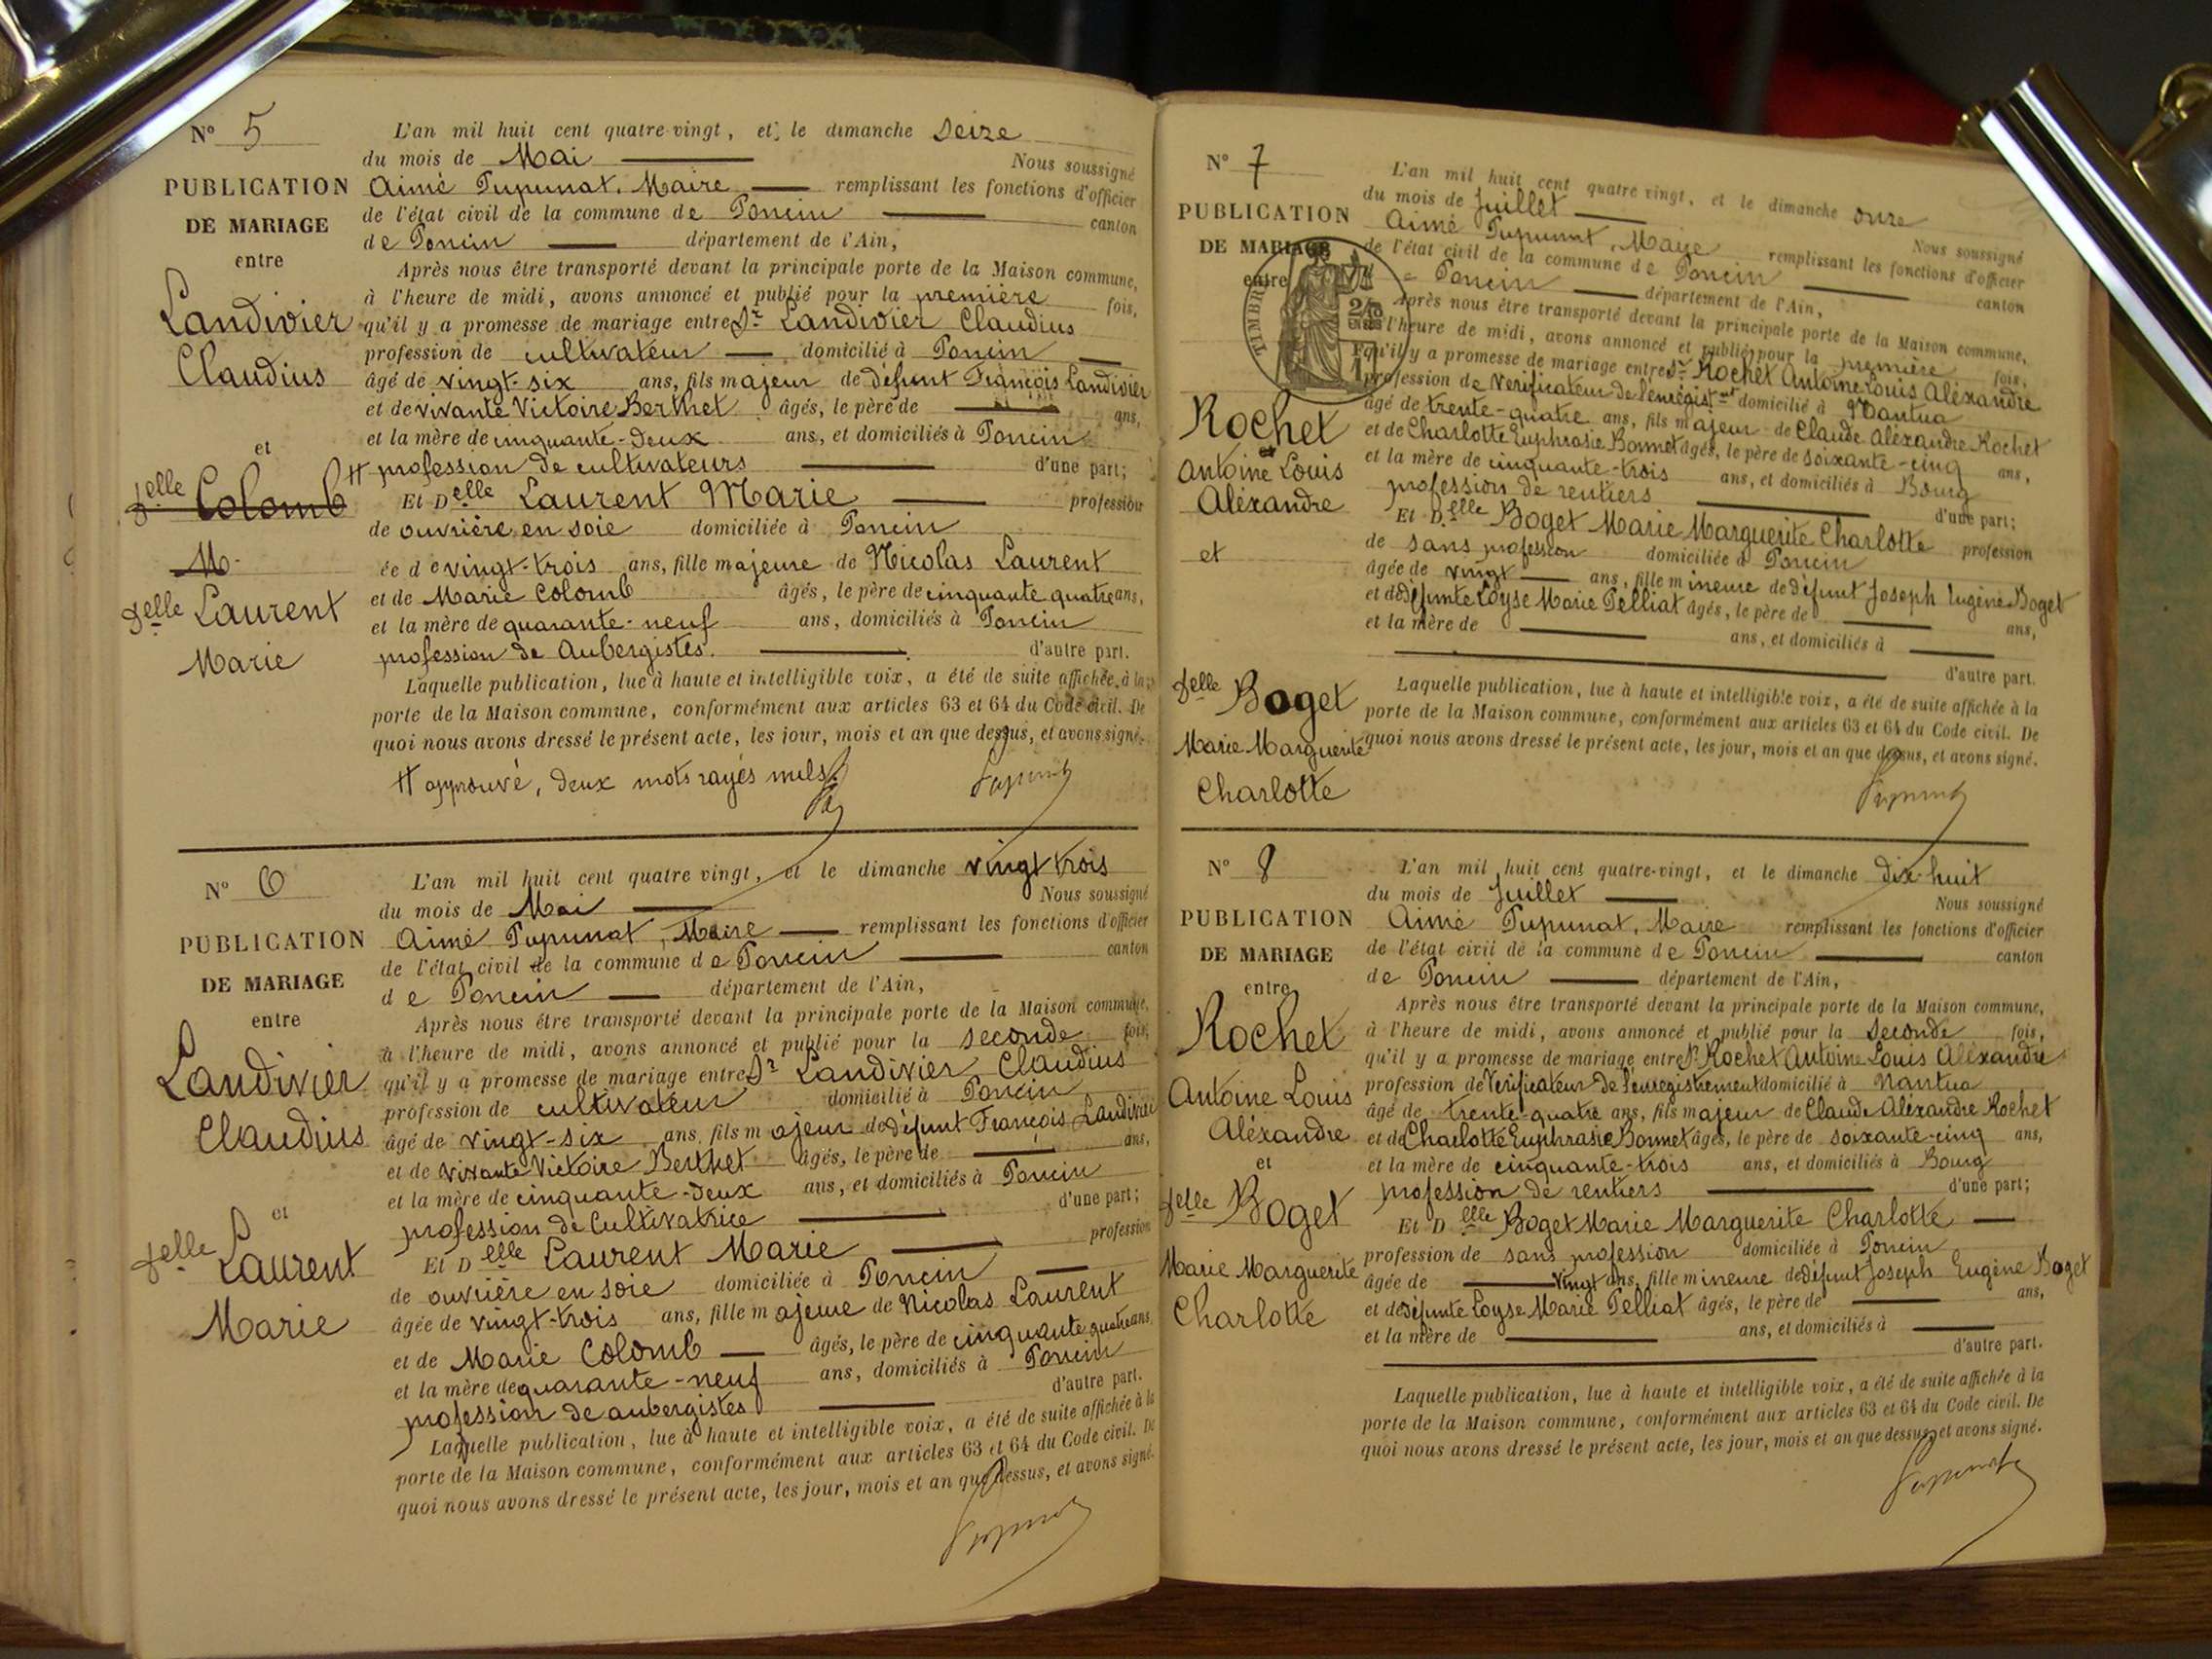 N° 5
PUBLICATION
DE MARIAGE
entre
Landivier
Claudius
et
Delle Colomb
M.
Delle Laurent
Marie
L'an mil huit cent quatre-vingt, et le dimanche seize
du mois de Mai Nous soussigné
Aimé Pupunat, Maire remplissant les fonctions d'officier
de l'état civil de la commune de Poncin canton
de Poncin département de l'Ain,
Après nous être transporté devant la principale porte de la Maison commune,
à l'heure de midi, avons annoncé et publié pour la première fois,
qu'il y a promesse de mariage entre Sr Landivier Claudius
profession de cultivateur domicilié à Poncin
âgé de vingt-six ans, fils majeur de défunt François Landivier
et de vivante Victoire Berthet âgés, le père de ans,
et la mère de cinquante-deux ans, et domiciliés à Poncin
profession de cultivateurs d'une part;
Et Delle Laurent Marie profession
de ouvrière en soie domiciliée à Poncin
ée de vingt-trois ans, fille majeure de Nicolas Laurent
et de Marie Colomb âgés, le père de cinquante quatre ans,
et la mère de quarante-neuf ans, domiciliés à Poncin
profession de Aubergistes. d'autre part.
Laquelle publication, lue à haute et intelligible voix, a été de suite affichée, à la
porte de la Maison commune, conformément aux articles 63 et 64 du Code civil. De
quoi nous avons dressé le présent acte, les jour, mois et an que dessus, et avons signé.
# approuvé, deux mots rayés nuls.
Pupunat
N° 6
PUBLICATION
DE MARIAGE
entre
Landivier
Claudius
et
Delle Laurent
Marie
L'an mil huit cent quatre vingt, et le dimanche vingt trois
du mois de Mai Nous soussigné
Aimé Pupunat, Maire remplissant les fonctions d'officier
de l'état civil de la commune de Poncin canton
de Poncin département de l'Ain,
Après nous être transporté devant la principale porte de la Maison commune,
à l'heure de midi, avons annoncé et publié pour la seconde fois,
qu'il y a promesse de mariage entre Sr Landivier Claudius
profession de cultivateur domicilié à Poncin
âgé de vingt-six ans, fils majeur de défunt François Landivier
et de vivante Victoire Berthet âgés, le père de ans,
et la mère de cinquante-deux ans, et domiciliés à Poncin
profession de Cultivatrice d'une part;
Et Delle Laurent Marie profession
de ouvrière en soie domiciliée à Poncin
âgée de vingt-trois ans, fille majeure de Nicolas Laurent
et de Marie Colomb âgés, le père de cinquante quatre ans
et la mère de quarante-neuf ans, domiciliés à Poncin
profession de aubergistes d'autre part.
Laquelle publication, lue à haute et intelligible voix, a été de suite affichée à la
porte de la Maison commune, conformément aux articles 63 et 64 du Code civil. De
quoi nous avons dressé le présent acte, les jour, mois et an que dessus, et avons signé.
Pupunat
N° 7
PUBLICATION
DE MARIAGE
entre
TIMBRE
Rochet
Antoine Louis
Aléxandre
et
Delle Boget
Marie Marguerite
Charlotte
L'an mil huit cent quatre vingt, et le dimanche onze
du mois de Juillet Nous soussigné
Aimé Pupunat, Maire remplissant les fonctions d'officier
de l'état civil de la commune de Poncin canton
Poncin département de l'Ain,
Après nous être transporté devant la principale porte de la Maison commune,
l'heure de midi, avons annoncé et publié pour la première fois,
qu'il y a promesse de mariage entre Sr Rochet Antoine Louis Aléxandre
profession de Vérificateur de l'enregistnt domicilié à Nantua
âgé de trente-quatre ans, fils majeur de Claude Aléxandre Rochet
et de Charlotte Euphrasie Bonnet âgés, le père de soixante-cinq ans,
et la mère de cinquante-trois ans, et domiciliés à Bourg
profession de rentiers d'une part;
Et Delle Boget Marie Marguerite Charlotte profession
de sans profession domiciliée à Poncin
âgée de vingt ans, fille mineure de défunt Joseph Eugène Boget
et de défunte Loyse Marie Pelliat âgés, le père de ans,
et la mère de ans, et domiciliés à
d'autre part.
Laquelle publication, lue à haute et intelligible voix, a été de suite affichée à la
porte de la Maison commune, conformément aux articles 63 et 64 du Code civil. De
quoi nous avons dressé le présent acte, les jour, mois et an que dessus, et avons signé.
Pupunat
N° 8
PUBLICATION
DE MARIAGE
entre
Rochet
Antoine Louis
Aléxandre
et
Delle Boget
Marie Marguerite
Charlotte
L'an mil huit cent quatre-vingt, et le dimanche dix-huit
du mois de Juillet Nous soussigné
Aimé Pupunat, Maire remplissant les fonctions d'officier
de l'état civil de la commune de Poncin canton
de Poncin département de l'Ain,
Après nous être transporté devant la principale porte de la Maison commune,
à l'heure de midi, avons annoncé et publié pour la seconde fois,
qu'il y a promesse de mariage entre Sr Rochet Antoine Louis Aléxandre
profession de Vérificateur de l'enregistrement domicilié à Nantua
âgé de trente-quatre ans, fils majeur de Claude Aléxandre Rochet
et de Charlotte Euphrasie Bonnet âgés, le père de soixante-cinq ans,
et la mère de cinquante-trois ans, et domiciliés à Bourg
profession de rentiers d'une part;
Et Delle Boget Marie Marguerite Charlotte
profession de sans profession domiciliée à Poncin
âgée de vingt ans, fille mineure de défunt Joseph Eugène Boget
et de défunte Loyse Marie Pelliat âgés, le père de ans,
et la mère de ans, et domiciliés à
d'autre part.
Laquelle publication, lue à haute et intelligible voix, a été de suite affichée à la
porte de la Maison commune, conformément aux articles 63 et 64 du Code civil. De
quoi nous avons dressé le présent acte, les jour, mois et an que dessus, et avons signé.
Pupunat